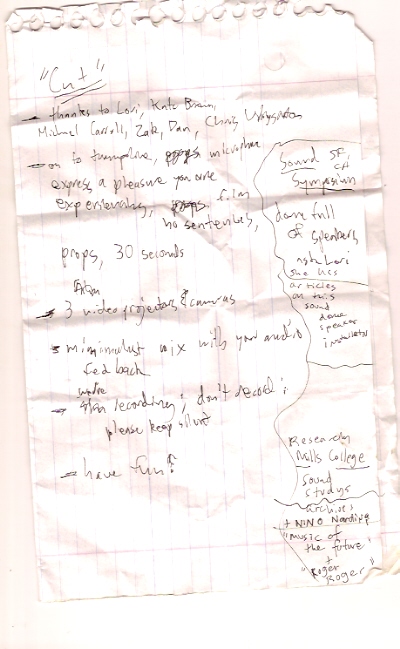 "Cut"
thanks to Lori, Kate Brown,
Michael Carroll, Zak, Dan, Chris
on to trampoline, microphone
express a pleasure you are
experiencing, film
no sentences,
props, 30 seconds
3 video projectors & cameras
minimulist mix with your audio
fed back
we're
recording; don't record;
please keep silent
have fun!
Sound SF, CA
Symposium
dome full
of speakers
ask Lori
she has
articles
on this
sound
dome
speaker
installation
Research
Mills College
Sound
studys
archives
+ NINO Nardini
"music of
the future"
+
"Roger
Roger"